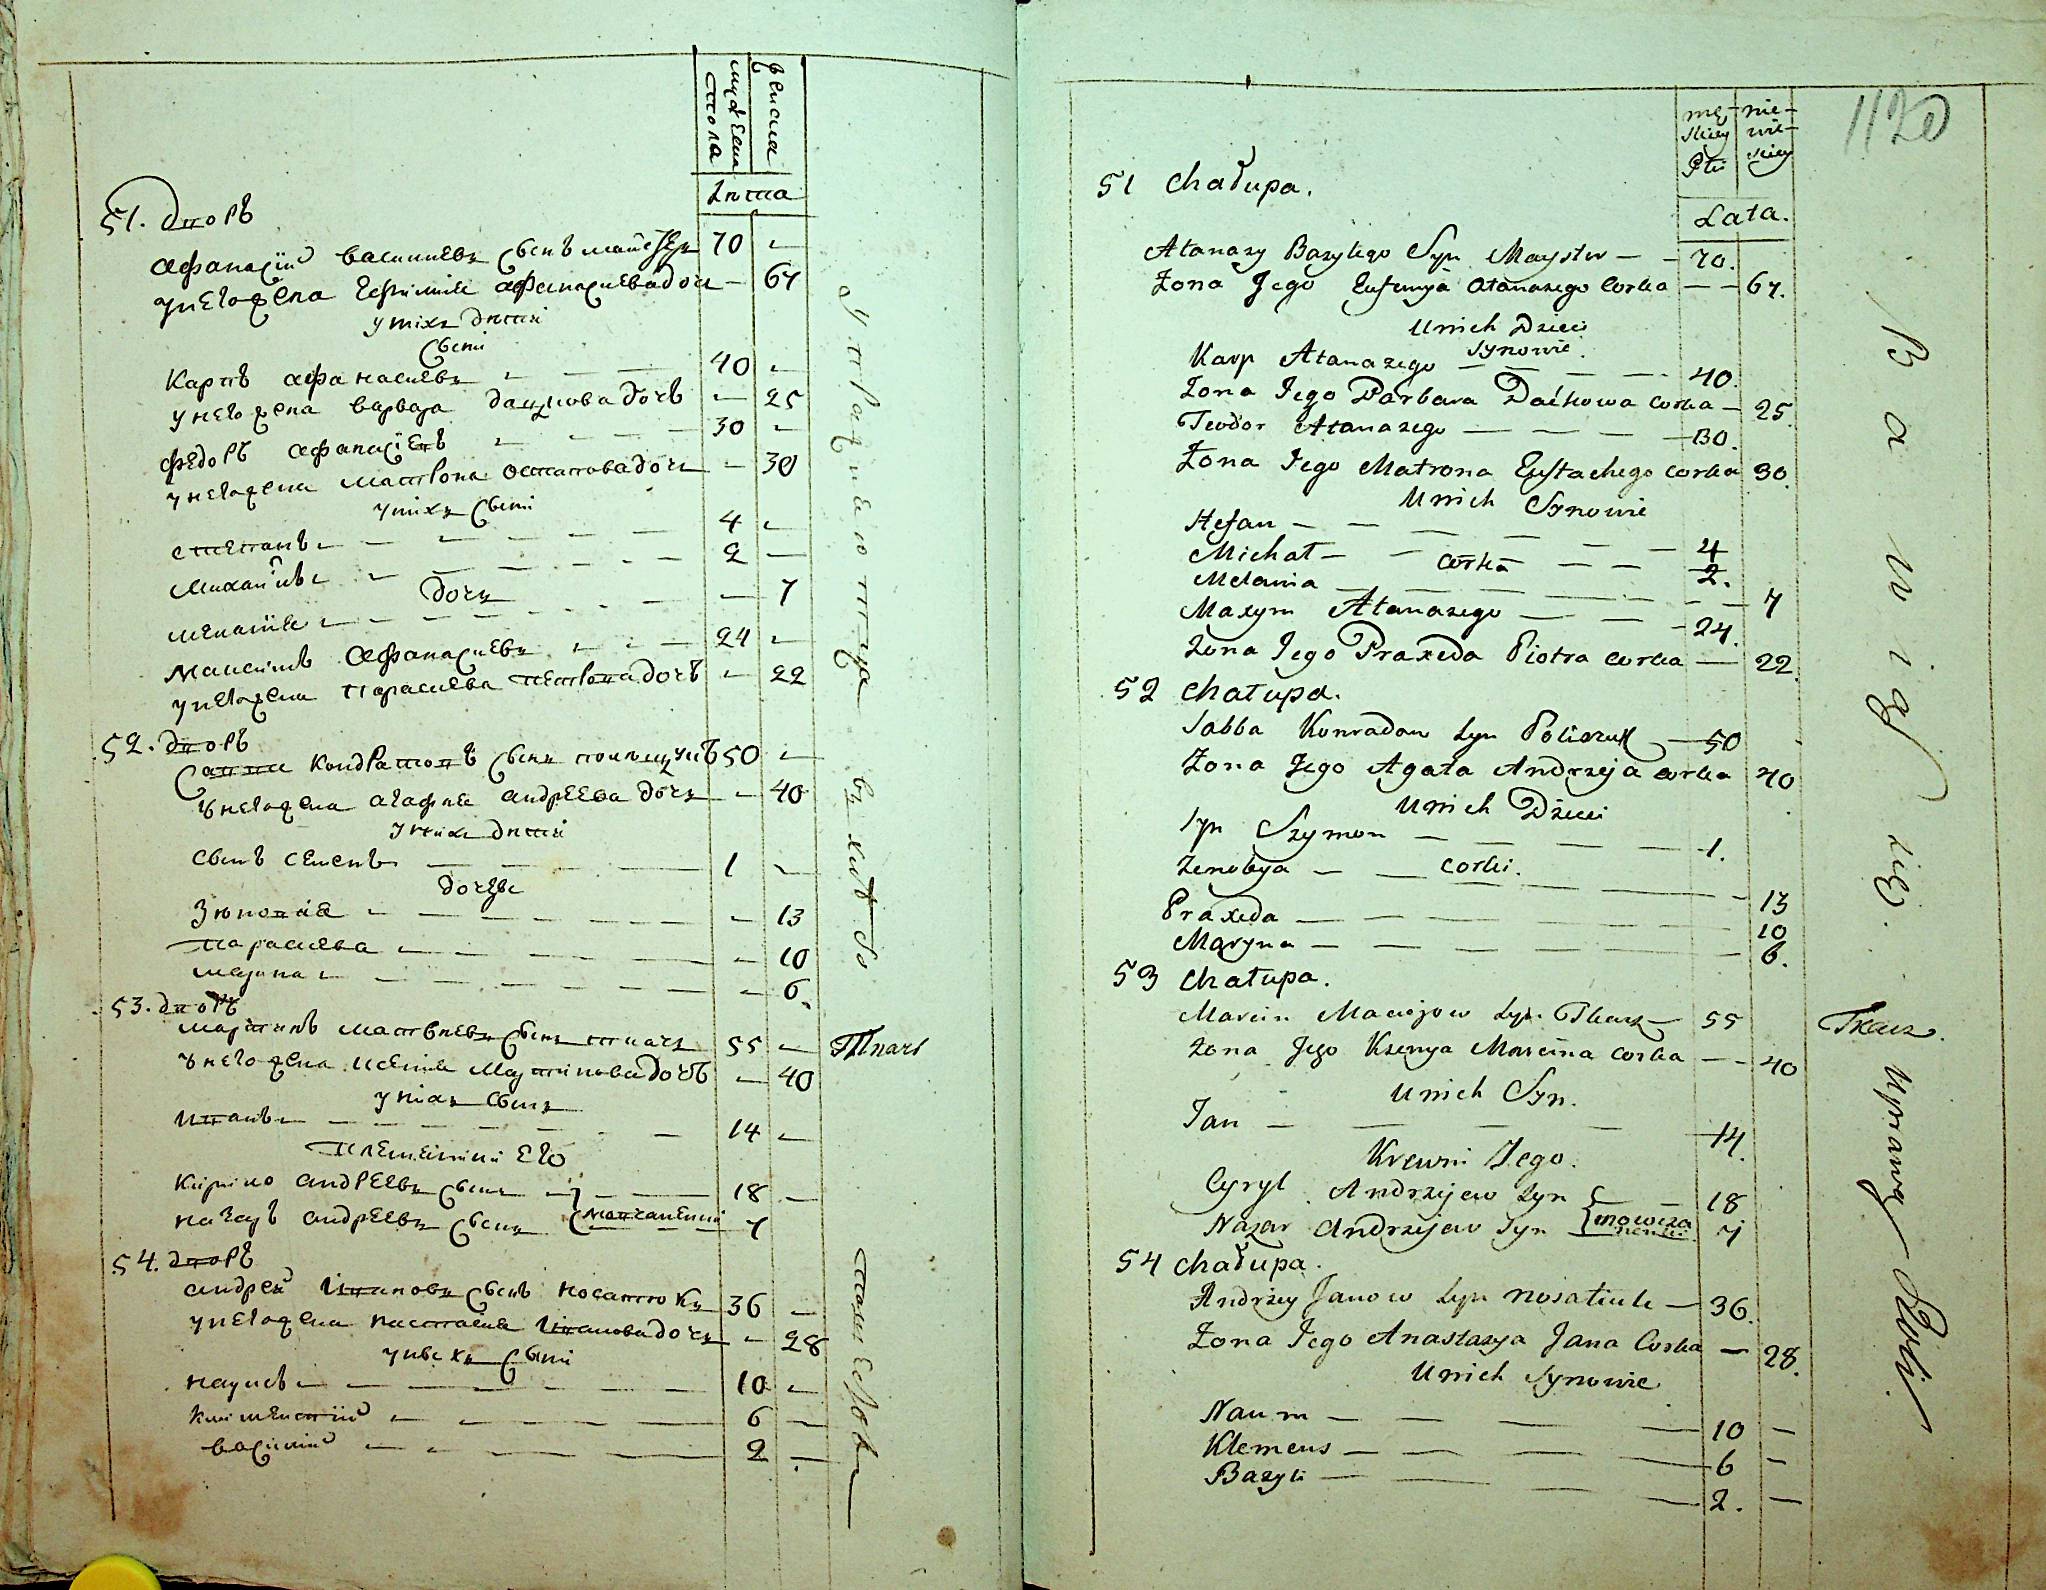 мужеска
пола
женска
Лѣта
51. дворъ
Афанасій Васильевъ сынъ майстеръ 70
у него жена Ефимия Афанасиева дочь 67
у тѣхъ дѣтей
сыни
Карпъ Афанасиевъ 40
у него жена Варвара Дацкова дочъ 25
Федоръ Афанасіевъ 30
у него жена Матрона Остапова дочь 30
у тѣхъ сыни
Степанъ 4
Михайлъ 2
дочь
Меланія 7
Максимъ Афанасиевъ 24
у него жена Парасковиа Петрова дочъ 22
52. дворъ
Савва Кондратовъ сынъ Полищукъ 50
у него жена Агафия Андреева дочь 40
у тѣхъ дѣтей
сынъ Семенъ 1
дочери
Зиновія 13
Параскева 10
Марина 6.
53. дворъ
Мартинъ Матвиевъ сынъ ткачъ 55
у него жена Ксения Мартинова дочъ 40
у тѣхъ сынъ
Иванъ 14
племенники его
Кирило Андреевъ сынъ 18
Назаръ Андреевъ сынъ 7
54. дворъ
Андрей Ивановъ сынъ Носатюкъ 36
у него жена Настасия Иванова дочь 28
у нихъ сыни
Наумъ 10
Климентій 6
Василій 2
Упражнаютца
въ хлѣбо
Ткачъ
1120
mę-
skiey
Płci
nie-
wie-
skiey
Lata.
51 Chałupa.
Atanazy Bazylego Syn Mayster 70.
Żona Jego Eufemija Atanazego Corka 67.
U nich Dzieci
Synowie.
Karp Atanazego 40.
Żona Jego Barbara Daćkowa Corka 25.
Teodor Atanazego 30.
Żona Jego Matrona Eustachego Corka 30.
U nich Synowie
Stefan 4
Michał 2.
Corka
Melania 7
Maxym Atanazego 24.
Żona Jego Praxeda Piotra Corka 22.
52 Chałupa.
Sabba Konradow Syn Poliszuk 50
Żona Jego Agata Andrzeja Corka 40
U nich Dzieci
Syn Szymon 1.
Corki.
Zenobya 13
Praxeda 10
Maryna 6.
53 Chałupa.
Marcin Maciejow Syn Tkacz 55
Żona Jego Ksenya Marcina Corka 40
U nich Syn.
Jan 14.
Krewni Jego.
Cyryl Andrzejew Syn 18
Nazar Andrzejew Syn 7
54 Chałupa.
Andrzey Janow Syn Nosatiuk 36.
Żona Jego Anastazya Jana Corka 28.
U nich Synowie
Naum 10
Klemens 6
Bazyli 2.
Bawią się
Tkacz.
Uprawą Roli